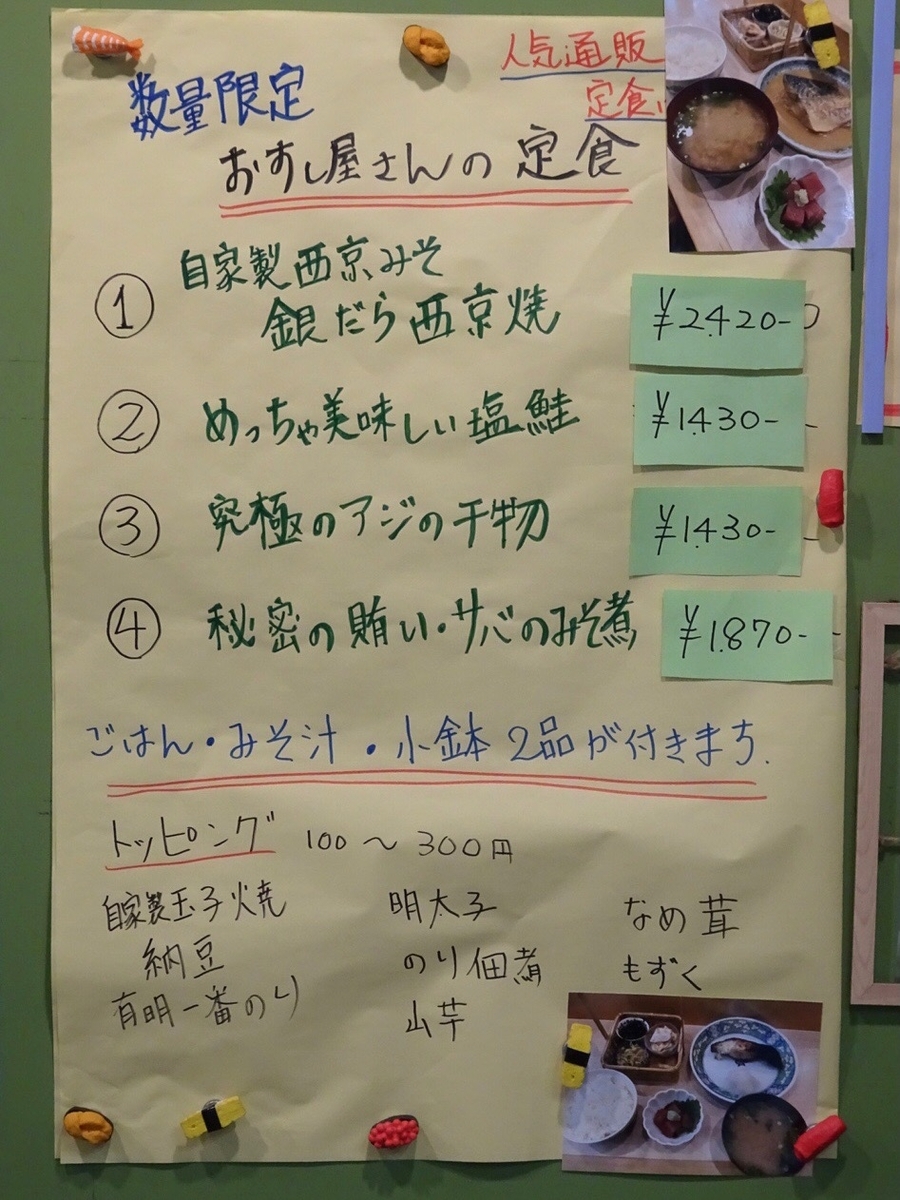 人気通販
定食
数量限定
おすし屋さんの定食
① 自家製西京みそ
銀だら西京焼 ¥2420-
② めっちゃ美味しい塩鮭 ¥1430-
③ 究極のアジの干物 ¥1430-
④ 秘密の賄い・サバのみそ煮 ¥1.870-
ごはん・みそ汁・小鉢2品が付きます.
トッピング 100〜300円
自家製玉子焼 明太子 なめ茸
納豆 のり佃煮 もずく
有明一番のり 山芋